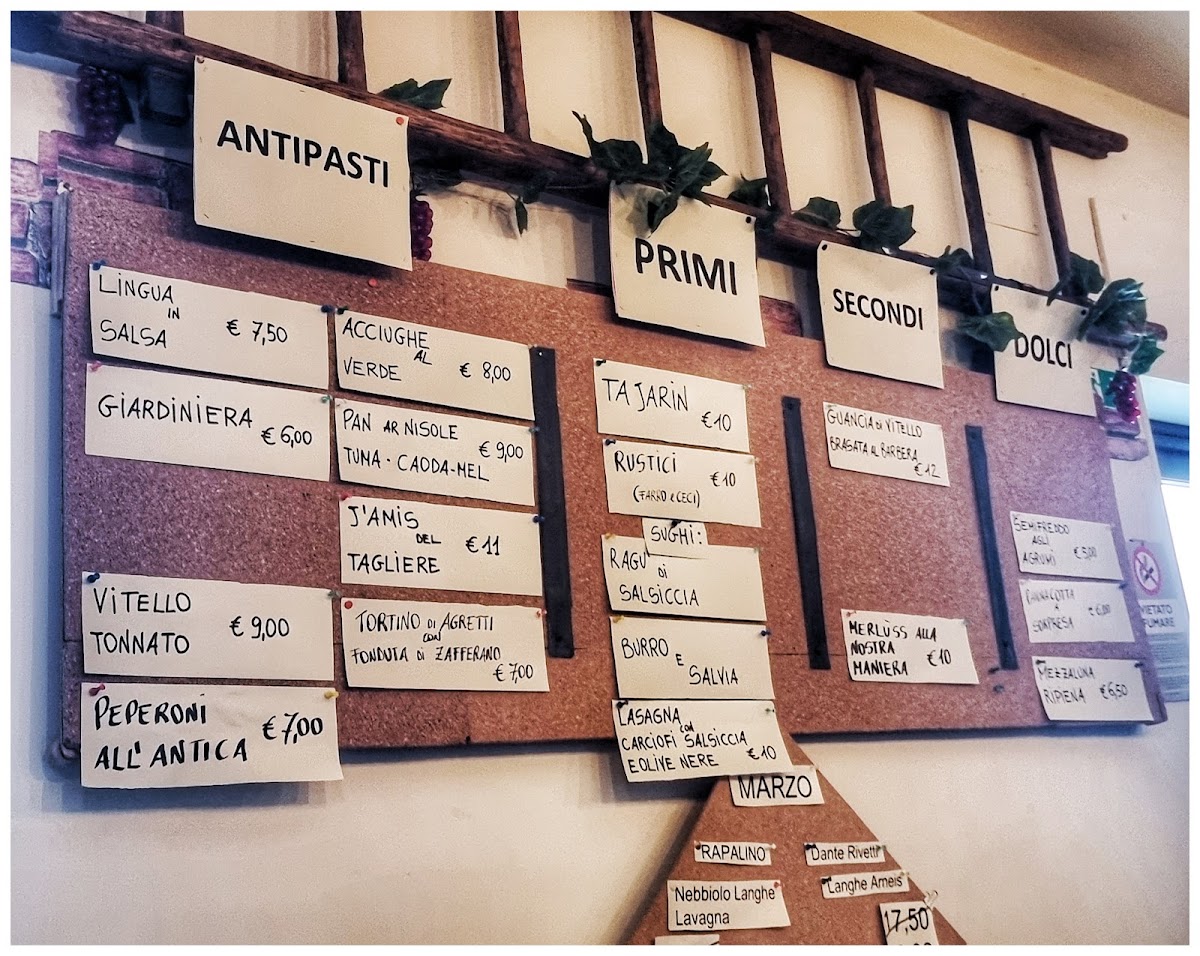 ANTIPASTI
LINGUA
IN
SALSA € 7,50
GIARDINIERA
€ 6,00
VITELLO
TONNATO € 9,00
PEPERONI
ALL'ANTICA € 7,00
ACCIUGHE
AL
VERDE € 8,00
PAN AR NISOLE
TUMA · CAODA-MEL € 9,00
J'AMIS
DEL
TAGLIERE € 11
TORTINO DI AGRETTI
CON
FONDUTA DI ZAFFERANO
€ 7,00
PRIMI
TAJARIN
€ 10
RUSTICI € 10
(FARRO E CECI)
SUGHI:
RAGU
DI
SALSICCIA
BURRO
E
SALVIA
LASAGNA
CON
CARCIOFI SALSICCIA
E OLIVE NERE € 10
SECONDI
GUANCIA DI VITELLO
BRASATA AL BARBERA
€ 12
MERLÜSS ALLA
NOSTRA
MANIERA € 10
DOLCI
SEMIFREDDO
AGLI
AGRUMI € 5,00
PANNACOTTA
A
SORPRESA € 6,00
MEZZALUNA
RIPIENA € 6,50
VIETATO
FUMARE
MARZO
RAPALINO
Nebbiolo Langhe
Lavagna
Dante Rivetti
Langhe Arneis
17,50